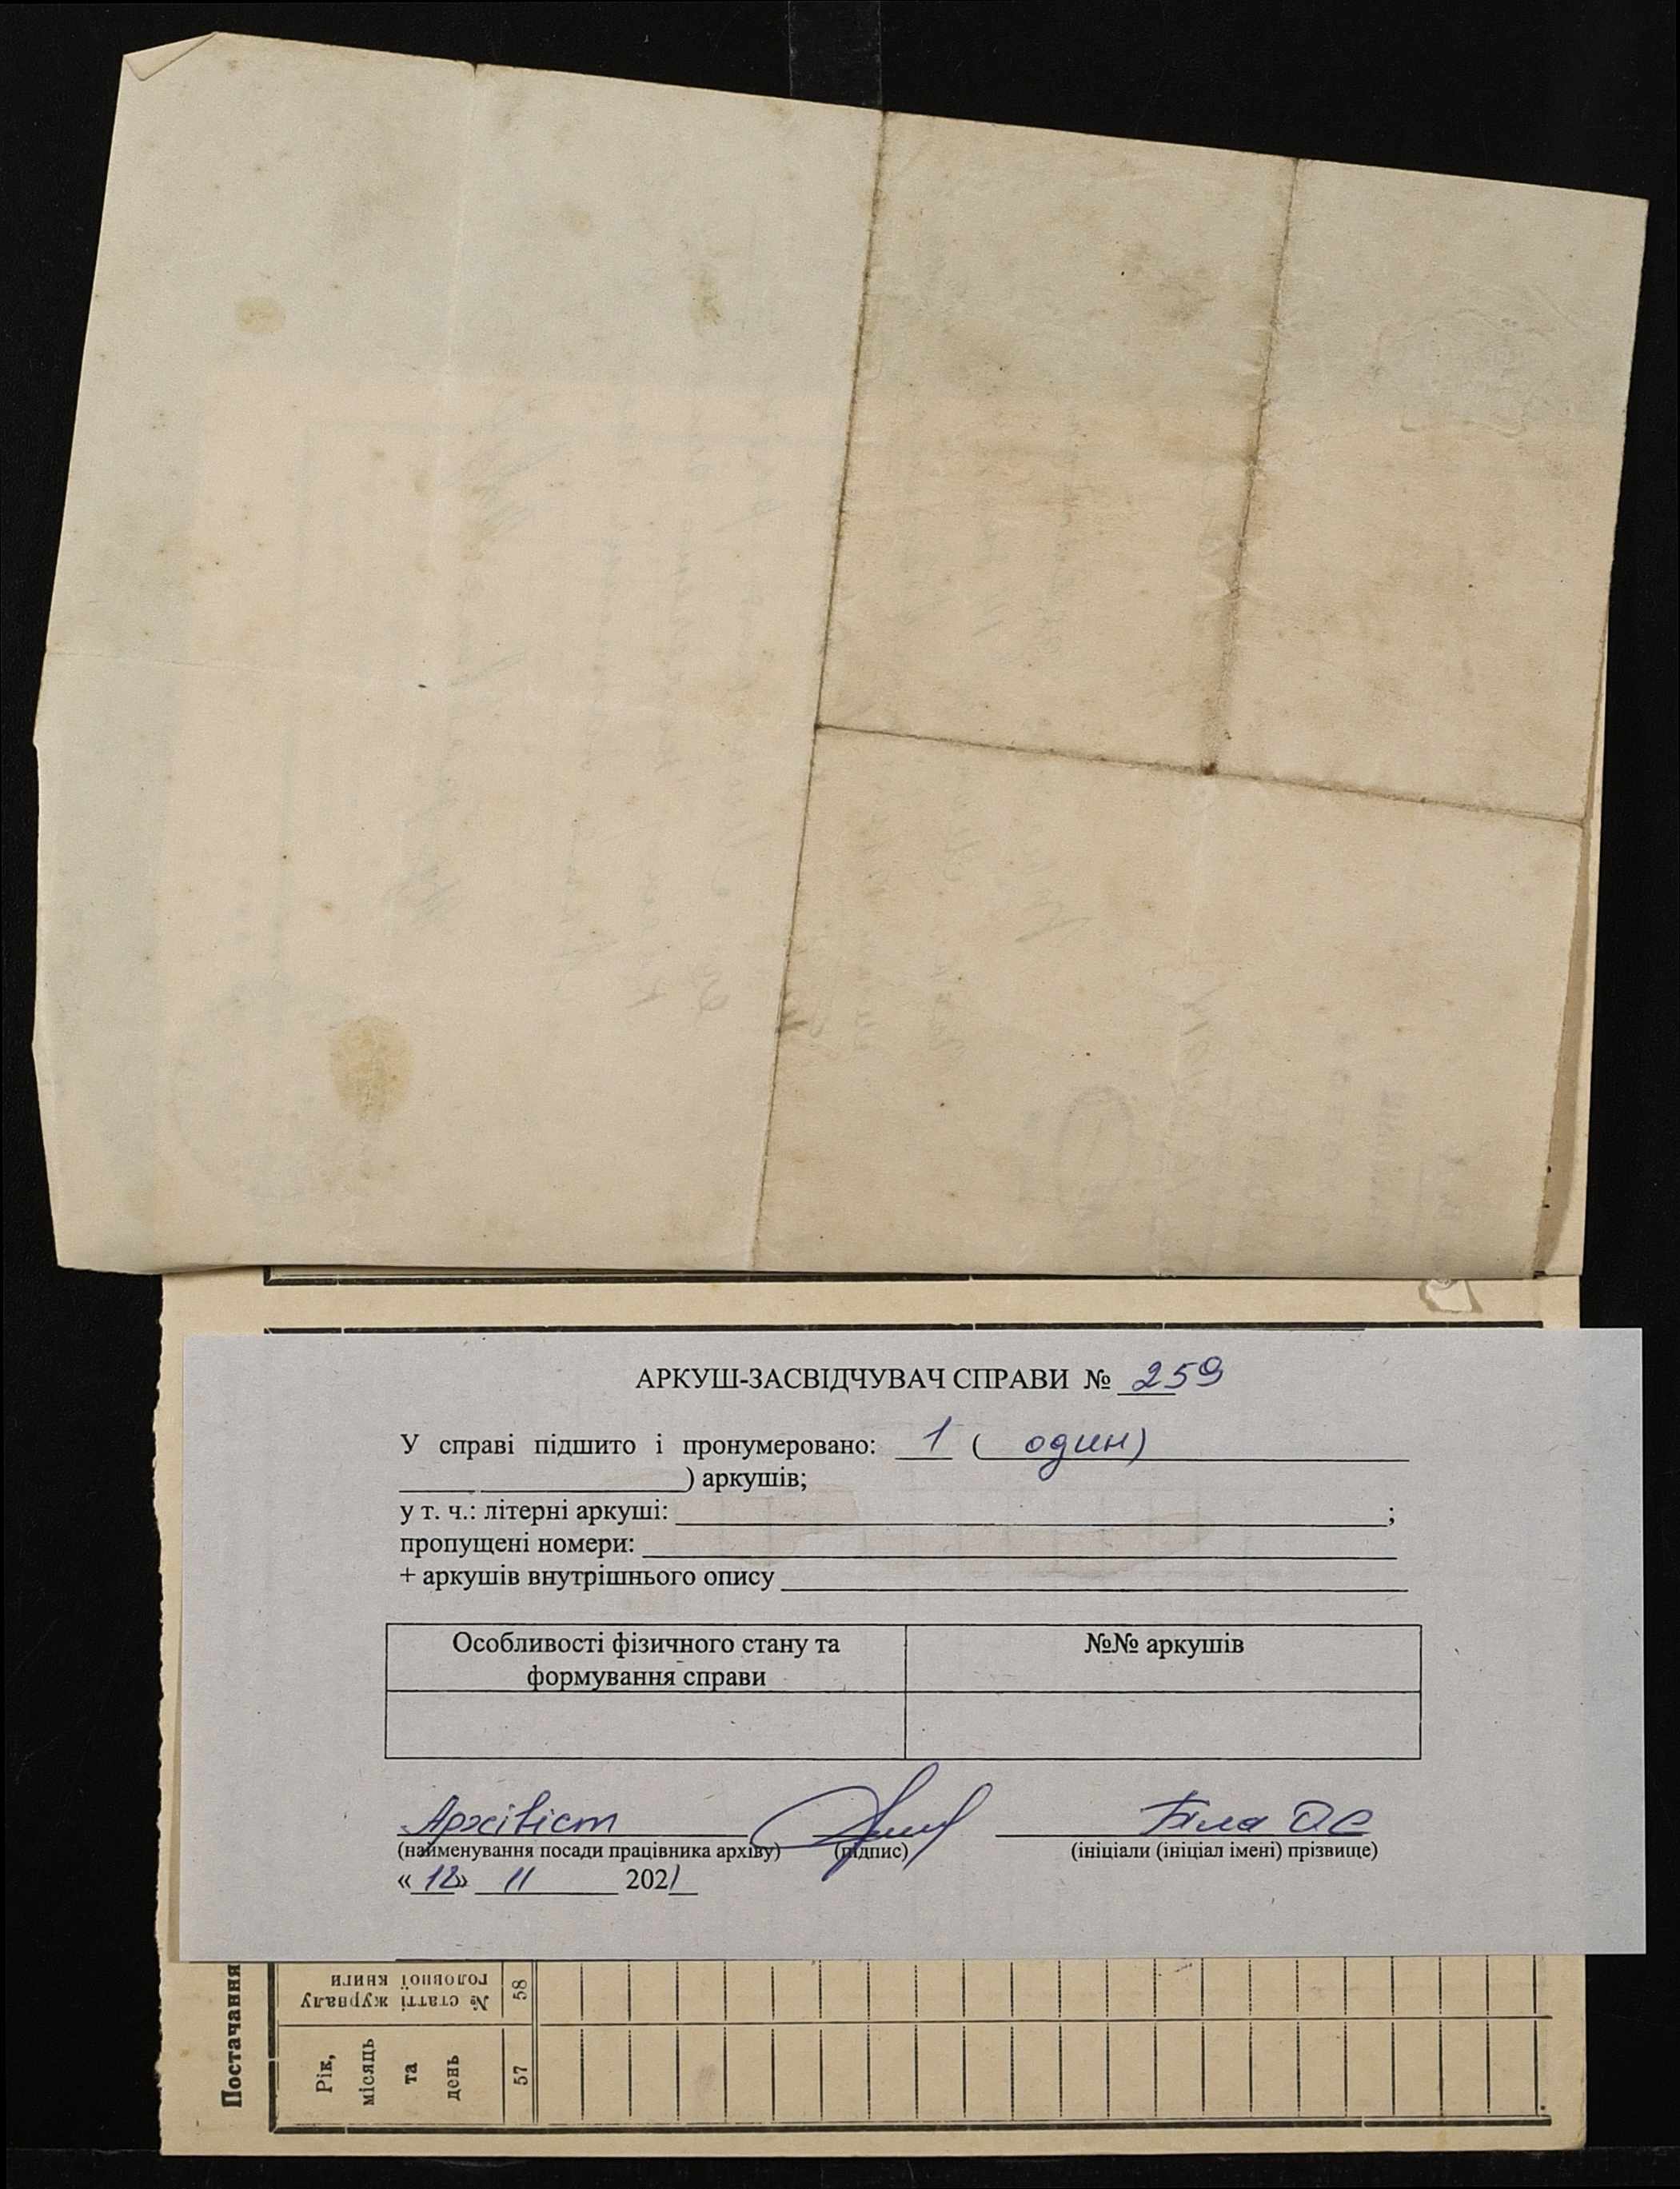 АРКУШ-ЗАСВІДЧУВАЧ СПРАВИ № 259
У справі підшито і пронумеровано: 1 ( один)
) аркушів;
у т. ч.: літерні аркуші: ;
пропущені номери:
+ аркушів внутрішнього опису
Особливості фізичного стану та формування справи
№№ аркушів
Архівіст
Біла ОС
(найменування посади працівника архіву) (підпис) (ініціали (ініціал імені) прізвище)
«12» 11 2021
Постачання
№ статті журналу
головної книги
58
Рік,
місяць
та
день
57